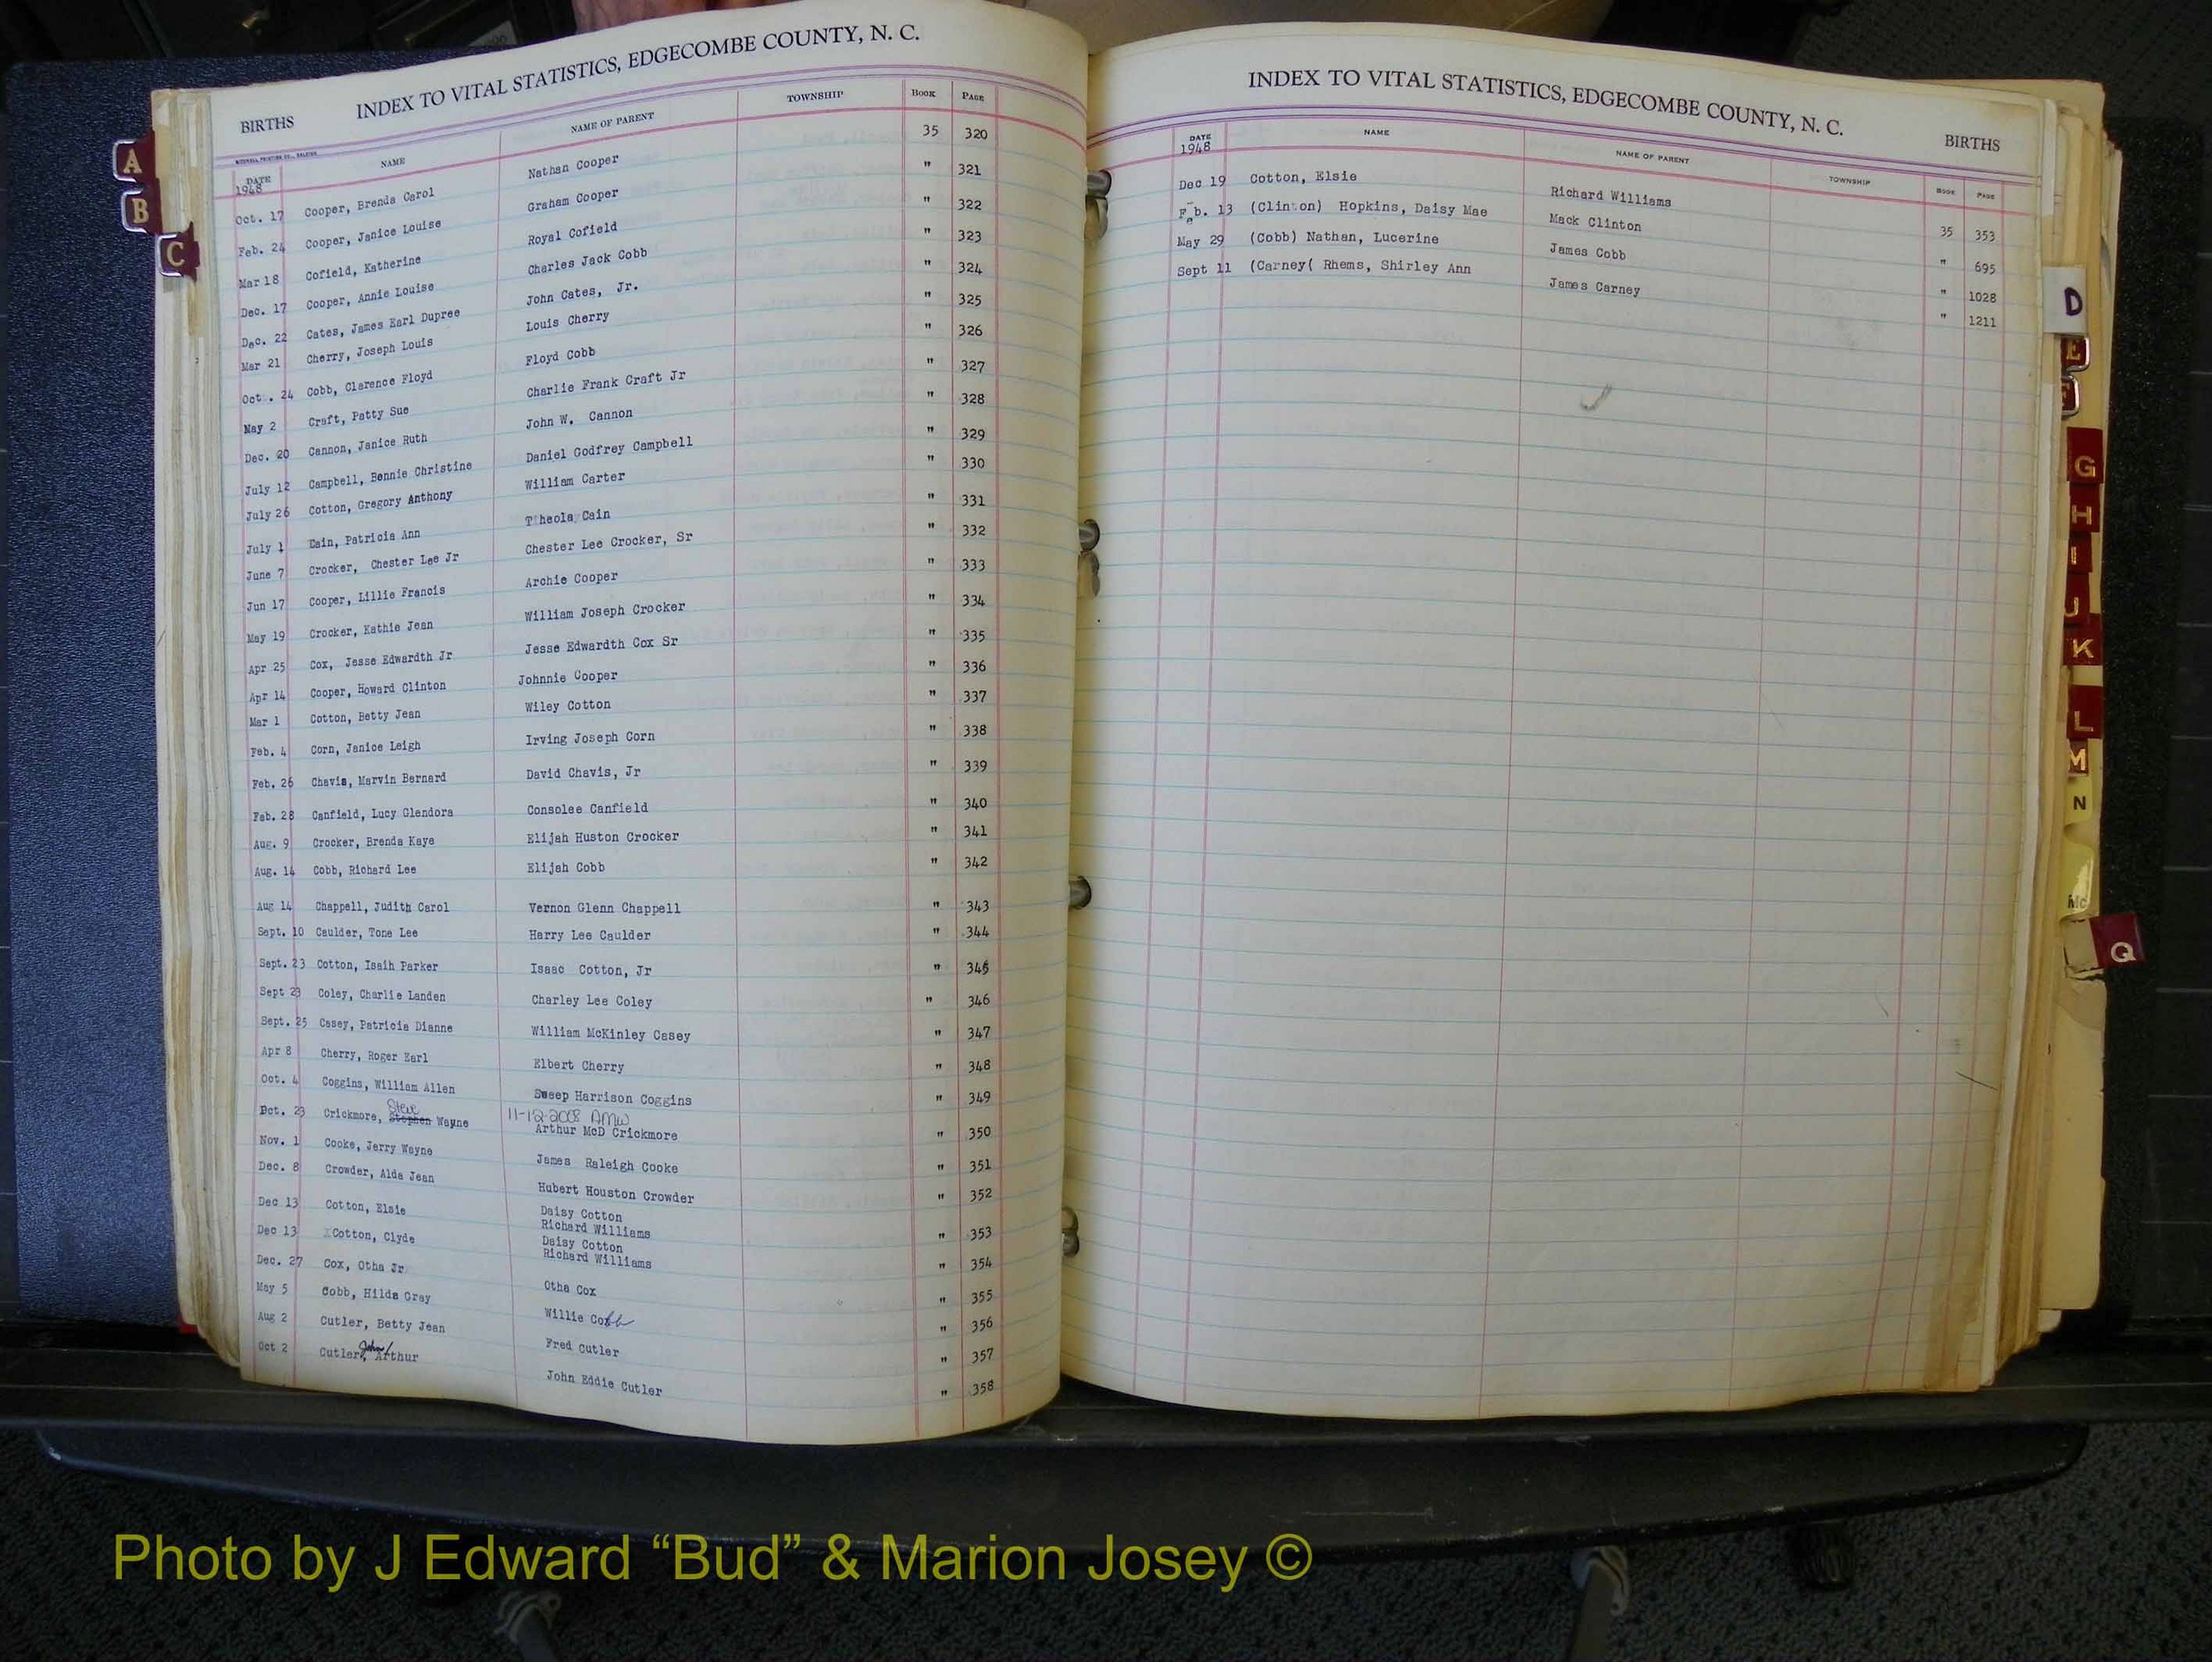 INDEX TO VITAL STATISTICS, EDGECOMBE COUNTY, N. C.
BIRTHS
DATE NAME NAME OF PARENT TOWNSHIP BOOK PAGE
1948
Oct. 17 Cooper, Brenda Carol Nathan Cooper 35 320
Feb. 24 Cooper, Janice Louise Graham Cooper " 321
Mar 18 Cofield, Katherine Royal Cofield " 322
Dec. 17 Cooper, Annie Louise Charles Jack Cobb " 323
Dec. 22 Cates, James Earl Dupree John Cates, Jr. " 324
Mar 21 Cherry, Joseph Louis Louis Cherry " 325
Oct. 24 Cobb, Clarence Floyd Floyd Cobb " 326
May 2 Craft, Patty Sue Charlie Frank Craft Jr " 327
Dec. 20 Cannon, Janice Ruth John W. Cannon " 328
July 12 Campbell, Bennie Christine Daniel Godfrey Campbell " 329
July 26 Cotton, Gregory Anthony William Carter " 330
July 1 Cain, Patricia Ann Theola Cain " 331
June 7 Crocker, Chester Lee Jr Chester Lee Crocker, Sr " 332
Jun 17 Cooper, Lillie Francis Archie Cooper " 333
May 19 Crocker, Kathie Jean William Joseph Crocker " 334
Apr 25 Cox, Jesse Edwardth Jr Jesse Edwardth Cox Sr " 335
Apr 14 Cooper, Howard Clinton Johnnie Cooper " 336
Mar 1 Cotton, Betty Jean Wiley Cotton " 337
Feb. 4 Corn, Janice Leigh Irving Joseph Corn " 338
Feb. 26 Chavis, Marvin Bernard David Chavis, Jr " 339
Feb. 28 Canfield, Lucy Glendora Consolee Canfield " 340
Aug. 9 Crocker, Brenda Kaye Elijah Huston Crocker " 341
Aug. 14 Cobb, Richard Lee Elijah Cobb " 342
Aug 14 Chappell, Judith Carol Vernon Glenn Chappell " 343
Sept. 10 Caulder, Tone Lee Harry Lee Caulder " 344
Sept. 23 Cotton, Isaih Parker Isaac Cotton, Jr " 345
Sept 23 Coley, Charlie Landen Charley Lee Coley " 346
Sept. 25 Casey, Patricia Dianne William McKinley Casey " 347
Apr 8 Cherry, Roger Earl Elbert Cherry " 348
Oct. 4 Coggins, William Allen Sweep Harrison Coggins " 349
Steve 11-12-2008 AMW
Oct. 23 Crickmore, Stephen Wayne Arthur McD Crickmore " 350
Nov. 1 Cooke, Jerry Wayne James Raleigh Cooke " 351
Dec. 8 Crowder, Alda Jean Hubert Houston Crowder " 352
Dec 13 Cotton, Elsie Daisy Cotton
Richard Williams " 353
Dec 13 Cotton, Clyde Daisy Cotton
Richard Williams " 354
Dec. 27 Cox, Otha Jr Otha Cox " 355
May 5 Cobb, Hilda Gray Willie Cobb " 356
Aug 2 Cutler, Betty Jean Fred Cutler " 357
Oct 2 Cutler, John Arthur John Eddie Cutler " 358
INDEX TO VITAL STATISTICS, EDGECOMBE COUNTY, N. C.
BIRTHS
DATE NAME NAME OF PARENT TOWNSHIP BOOK PAGE
1948
Dec 19 Cotton, Elsie Richard Williams 35 353
Feb. 13 (Clinton) Hopkins, Daisy Mae Mack Clinton " 695
May 29 (Cobb) Nathan, Lucerine James Cobb " 1028
Sept 11 (Carney( Rhems, Shirley Ann James Carney " 1211
A
B
C
D
E
F
G
H
I
J
K
L
M
N
Mc
Q
Photo by J Edward “Bud” & Marion Josey ©